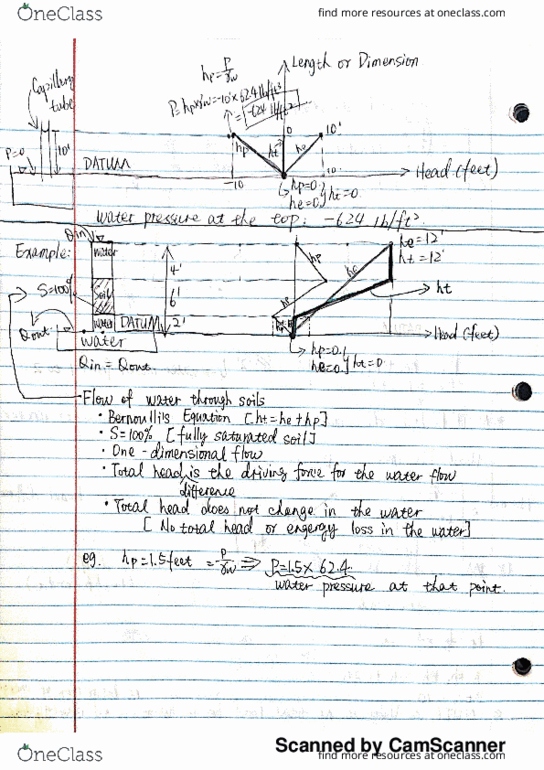 OneClass
find more resources at oneclass.com
hp = P/γw
Length or Dimension
Capillary tube
P = hp×γw = -10'×62.4 lb/ft³
= -624 lb/ft²
0
10'
P=0
10'
hp
ht
he
DATUM
-10
10
Head (feet)
hp=0
he=0
ht=0
water pressure at the top: -624 lb/ft²
Qin
Example:
water
4'
hp
he
he=12'
ht=12'
S=100%
soil
6'
hp
ht
Qout
water
DATUM
2'
Head (feet)
water
hp=0
he=0
ht=0
Qin = Qout
Flow of water through soils
• Bernoulli's Equation [ht=he+hp]
• S=100% [fully saturated soil]
• One-dimensional flow
• Total head is the driving force for the water flow
difference
• Total head does not change in the water
[No total head or engergy loss in the water]
eg. hp=1.5feet = P/γw ⇒ P=1.5×62.4
water pressure at that point.
Scanned by CamScanner
OneClass
find more resources at oneclass.com